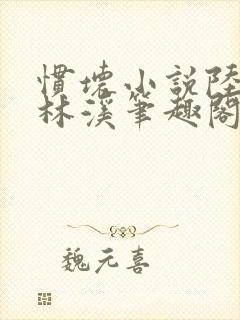 慣壞小說陸
林溪筆趣閣
魏元喜